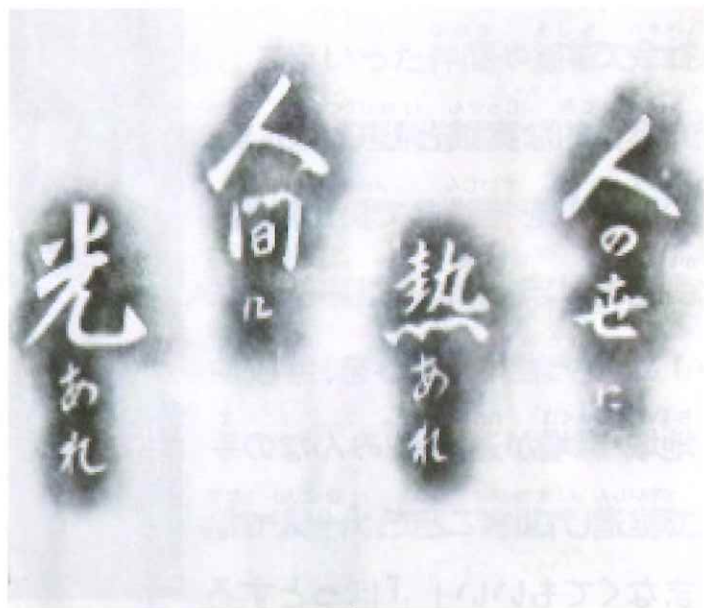 人の世に
熱あれ
人間に
光あれ